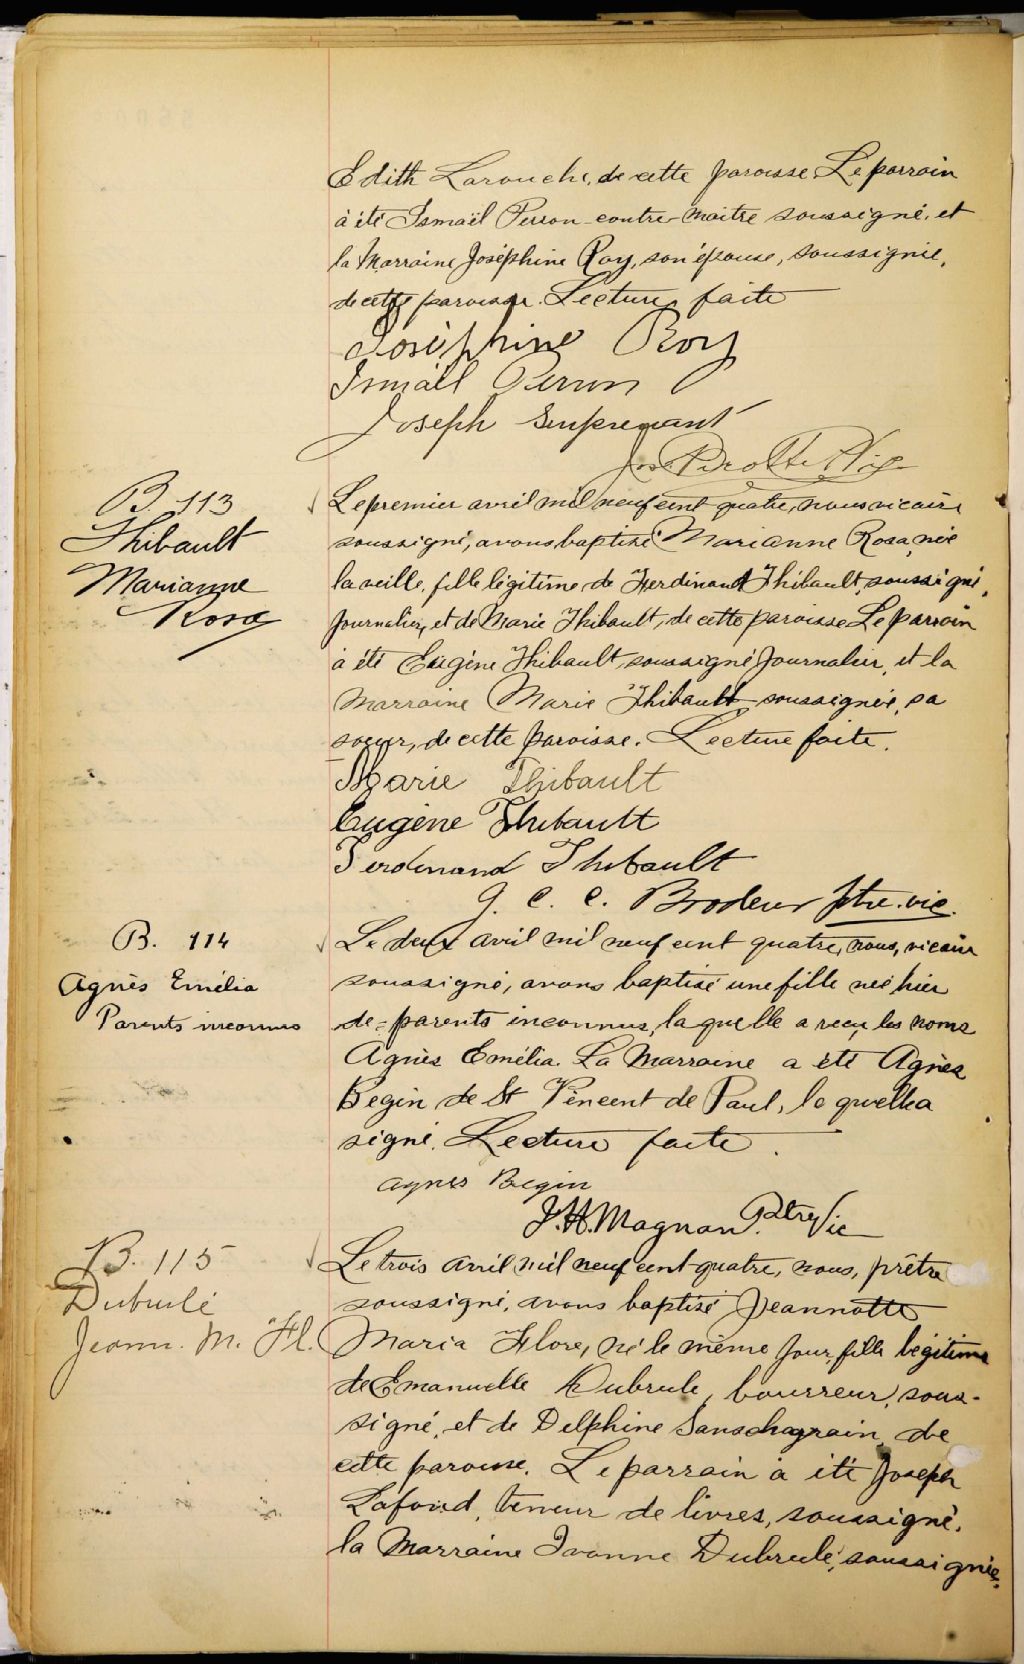 Edith Larouche, de cette paroisse. Le parrain
à été Ismaël Perron contre-maitre soussigné, et
la Marraine Joséphine Roy, son épouse, soussignée,
de cette paroisse. Lecture faite
Joséphine Roy
Ismaël Perron
Joseph Surprenant
B. 113
Thibault
Marianne
Rosa
Le premier avril mil neuf cent quatre, nous vicaire
soussigné, avons baptisé Marianne Rosa, née
la veille, fille légitime de Ferdinand Thibault, soussigné,
Journalier, et de Marie Thibault, de cette paroisse. Le parrain
à été Eugène Thibault, soussigné Journalier, et la
Marraine Marie Thibault soussignée, sa
soeur, de cette paroisse. Lecture faite.
Marie Thibault
Eugène Thibault
Ferdinand Thibault
J. C. C. Brodeur ptre. vic.
B. 114
Agnès Emélia
Parents inconnus
Le deux avril mil neuf cent quatre, nous, vicaire
soussigné, avons baptisé une fille née hier
de parents inconnus, laquelle a reçu les noms
Agnès Emélia. La Marraine a été Agnès
Begin de St Vincent de Paul, laquelle a
signé. Lecture faite.
Agnes Begin
J. H. Magnan. Ptre Vic
B. 115
Dubrulé
Jeann. M. Fl.
Le trois avril mil neuf cent quatre, nous, prêtre
soussigné, avons baptisé Jeannotte
Maria Flore, né le même jour, fille légitime
de Emanuelle Dubrule, bourreur, sous-
signé, et de Delphine Sanschagrain, de
cette paroisse. Le parrain à été Joseph
Lafond, teneur de livres, soussigné,
la Marraine Ivonne Dubrulé, soussignée,